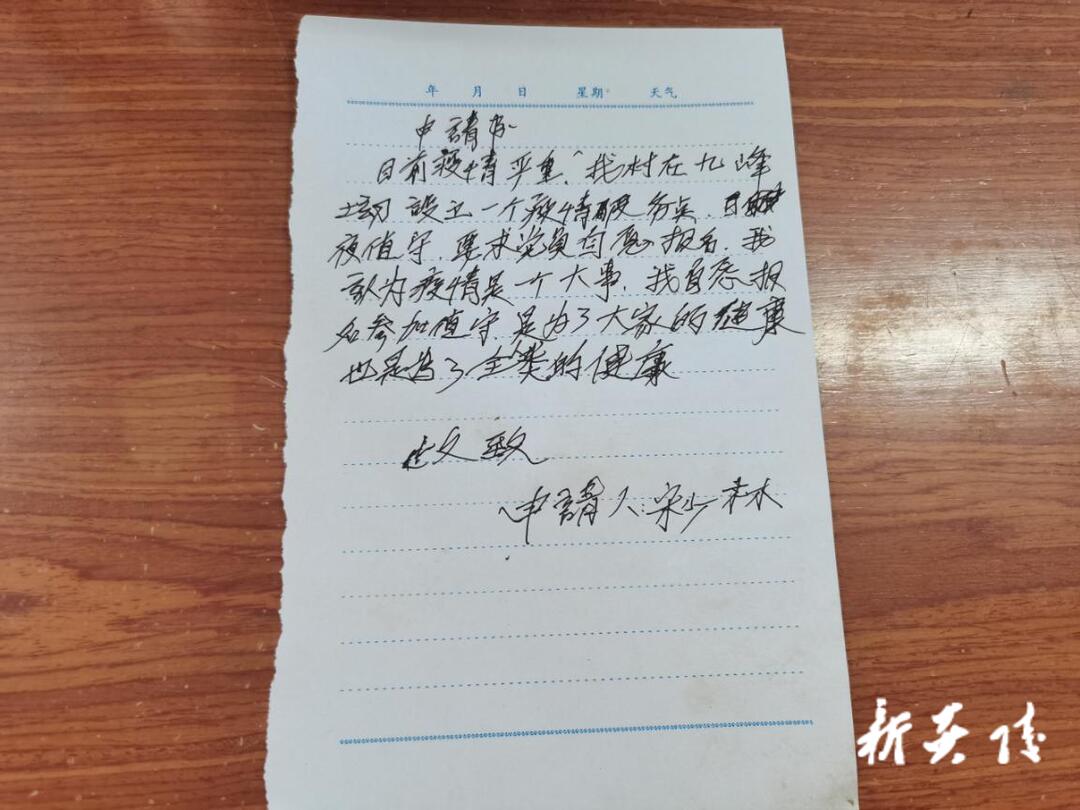 年 月 日 星期 天气
申請书
目前疫情严重，我村在九峰
设立一个疫情服务点，日
夜值守，要求党员自愿报名，我
认为疫情是一个大事，我自愿报
名参加值守，是为了大家的健康
也是为了全 的健康
此致
申請人：宋少
新英德